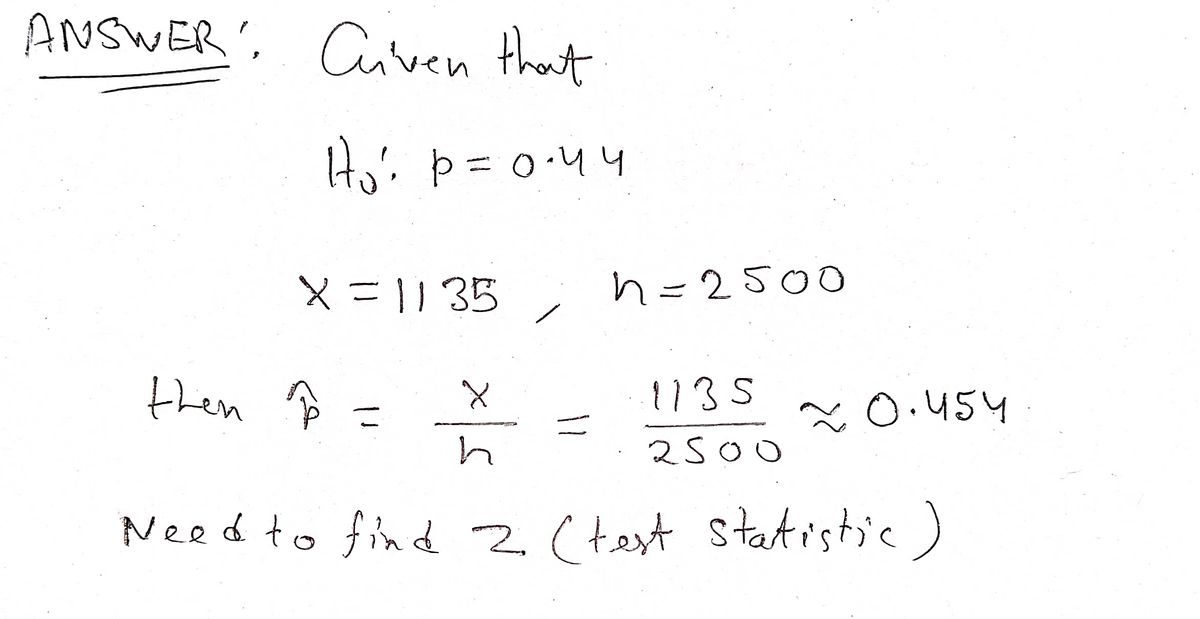 ANSWER: Given that
H₀: p = 0.44
x = 1135, n = 2500
then p̂ = x/n = 1135/2500 ≈ 0.454
Need to find z (test statistic)